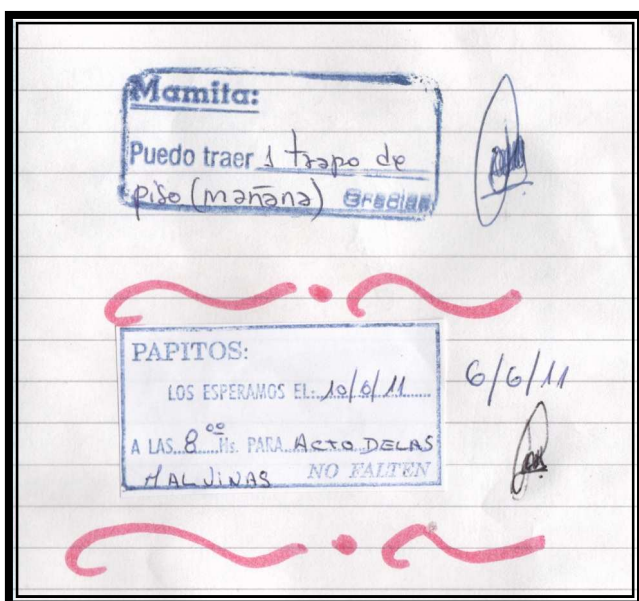 Mamita:
Puedo traer 1 trapo de
piso (mañana) Gracias
PAPITOS:
LOS ESPERAMOS EL: 10/6/11
6/6/11
A LAS 8⁰⁰ Hs. PARA ACTO DE LAS
MALVINAS NO FALTEN